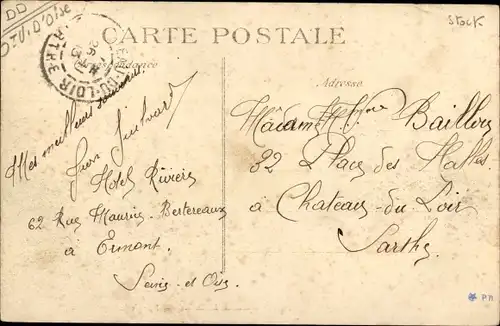 DD
D-Val D'Oise
Stock
CARTE POSTALE
Correspondance
Adresse
CHAT-DU-LOIR
SARTHE
Mes meilleurs souvenirs.
Hotel Rivière
62 Rue Maurice-Bertereaux
à Ermont.
Seine-et-Oise
Madame Baillou
32 Place des Halles
à Chateau-du-Loir
Sarthe
PR